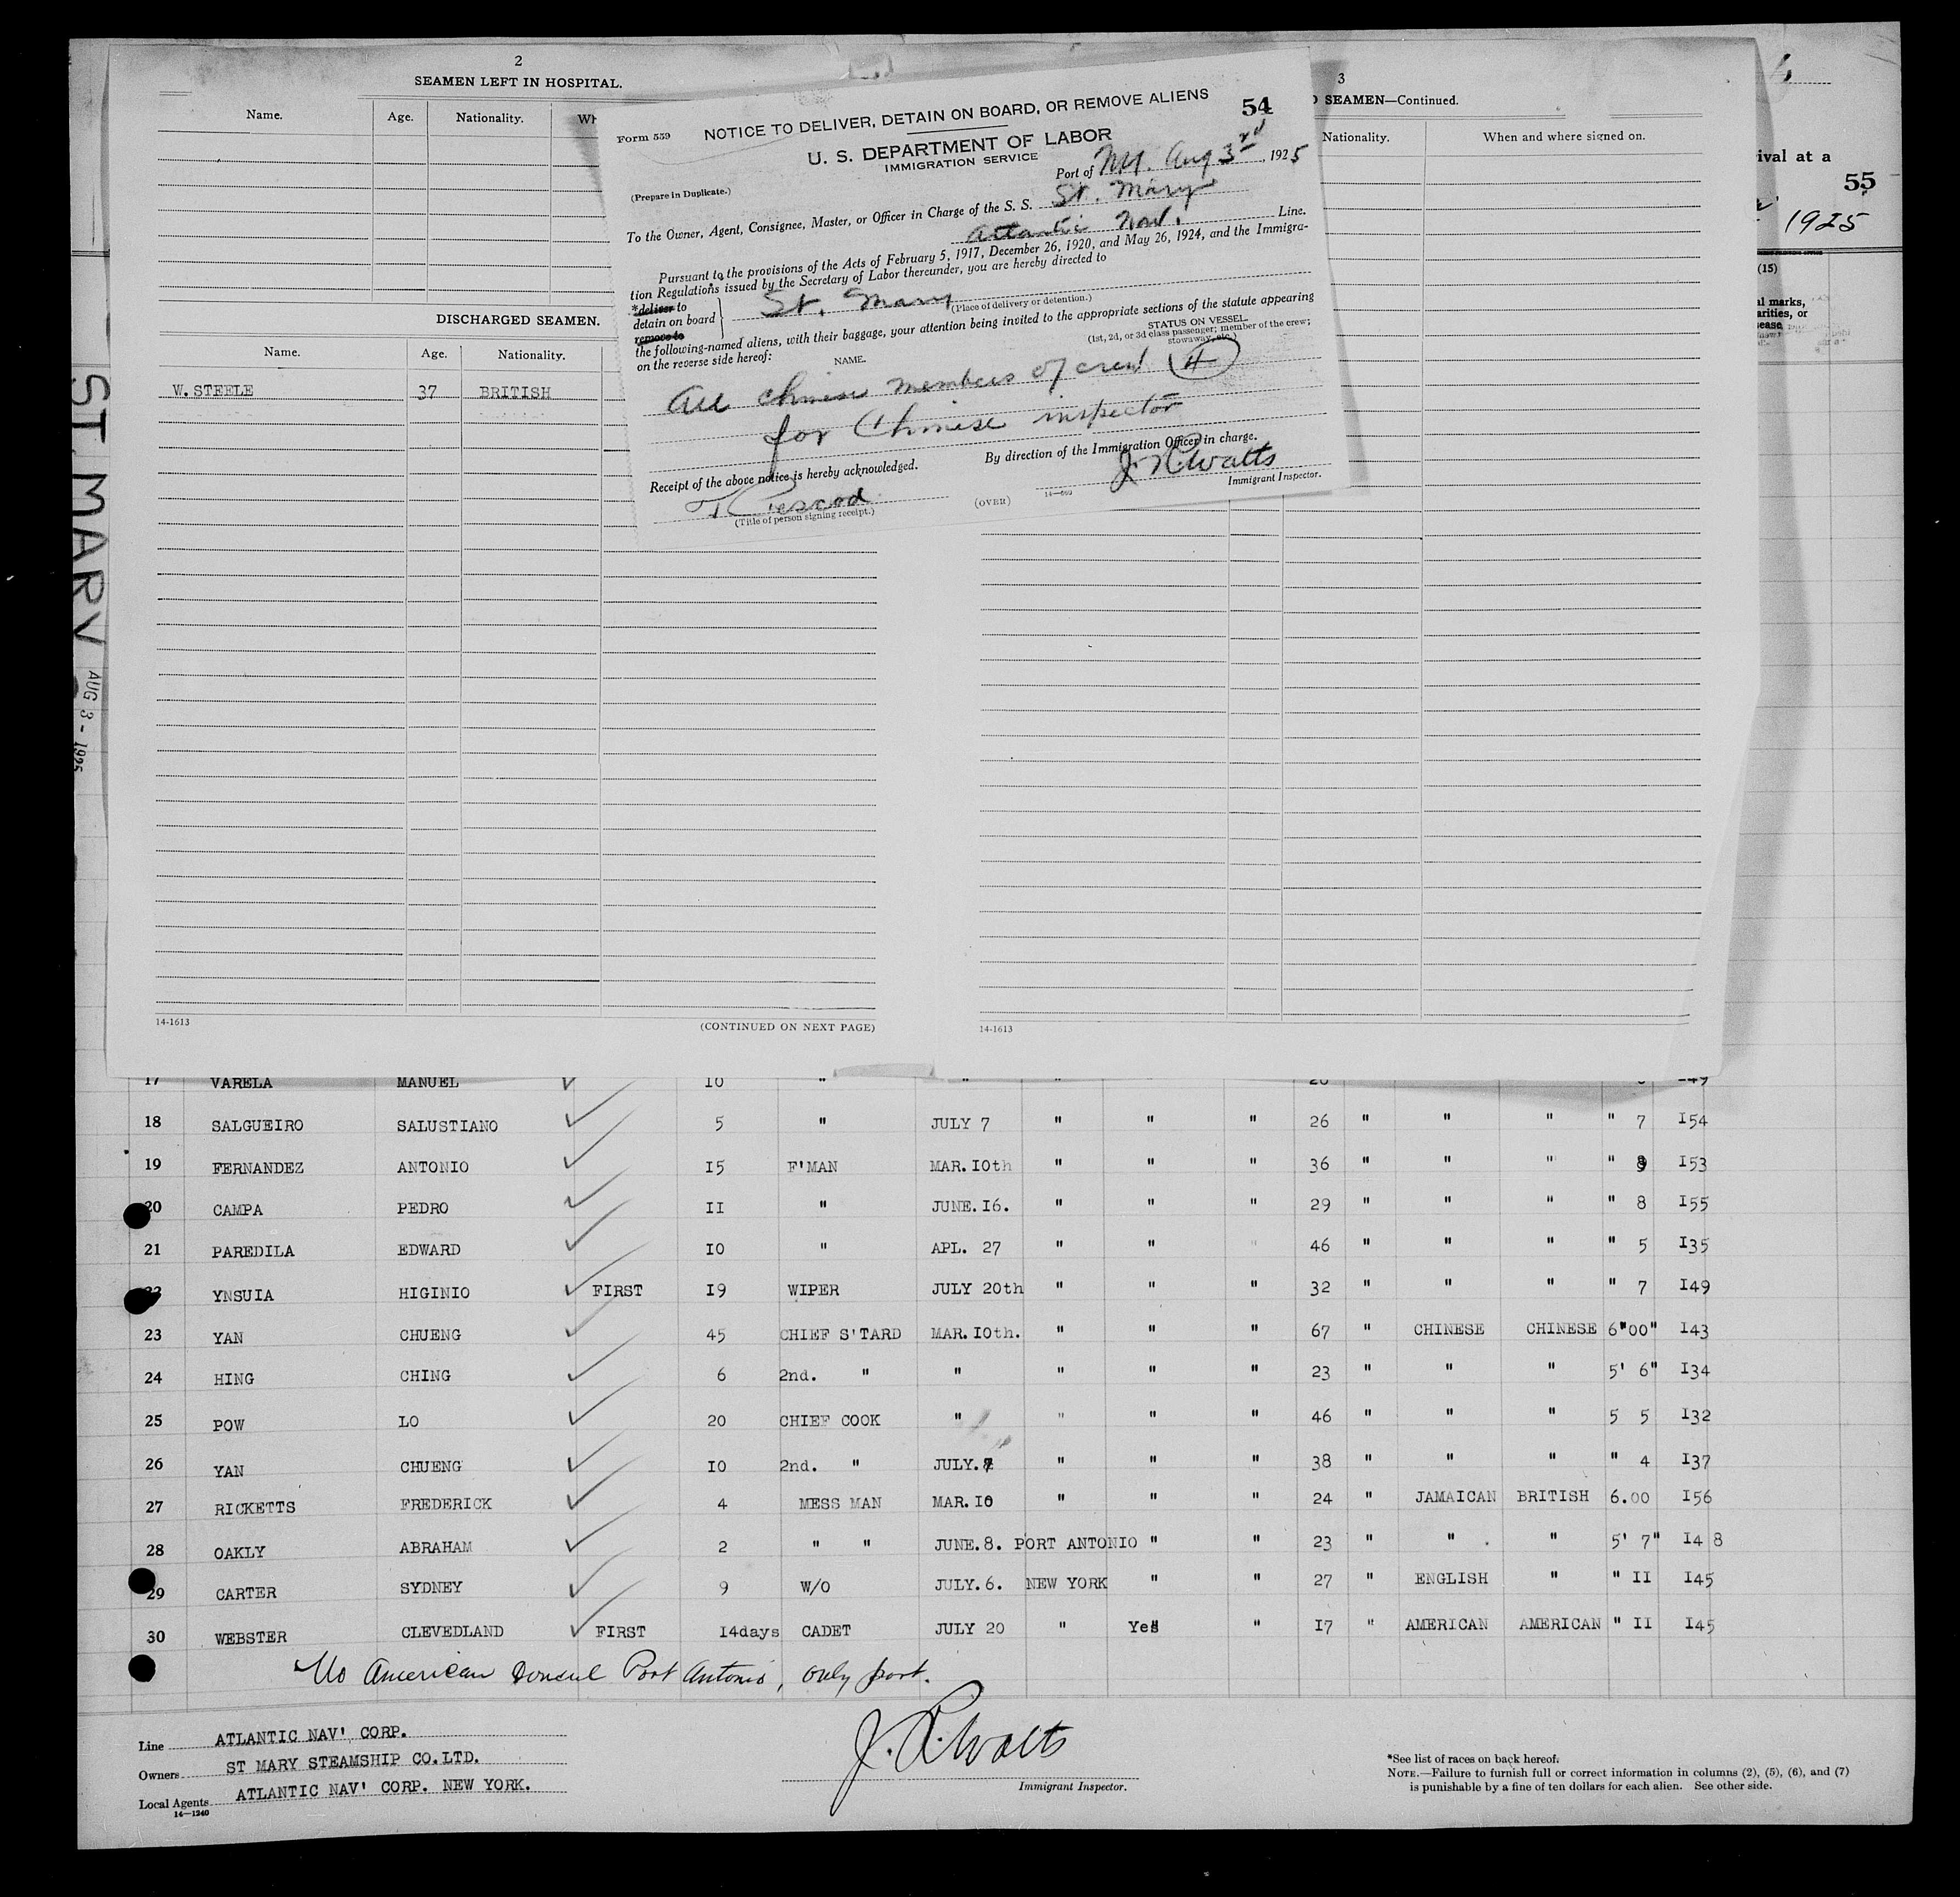 2
SEAMEN LEFT IN HOSPITAL.
Name. Age. Nationality. Wh
DISCHARGED SEAMEN.
Name. Age. Nationality.
W. STEELE 37 BRITISH
14-1613 (CONTINUED ON NEXT PAGE)
54
Form 559 NOTICE TO DELIVER, DETAIN ON BOARD, OR REMOVE ALIENS
U. S. DEPARTMENT OF LABOR
IMMIGRATION SERVICE
(Prepare in Duplicate.) Port of N.Y. Aug 3rd, 1925
To the Owner, Agent, Consignee, Master, or Officer in Charge of the S. S. St. Mary
Atlantic Nav. Line.
Pursuant to the provisions of the Acts of February 5, 1917, December 26, 1920, and May 26, 1924, and the Immigra-
tion Regulations issued by the Secretary of Labor thereunder, you are hereby directed to
*deliver to
detain on board
remove to
St. Mary
(Place of delivery or detention.)
the following-named aliens, with their baggage, your attention being invited to the appropriate sections of the statute appearing
on the reverse side hereof:
NAME.
STATUS ON VESSEL
(1st, 2d, or 3d class passenger; member of the crew;
stowaway, etc.)
All chinese members of crew (4)
for Chinese inspector
Receipt of the above notice is hereby acknowledged. By direction of the Immigration Officer in charge.
J. R. Watts
Immigrant Inspector.
(Title of person signing receipt.) (OVER) 14-560
3
D SEAMEN—Continued.
Nationality. When and where signed on.
14-1613
ival at a
55
1925
(15)
al marks,
arities, or
sease
ST. MARY
AUG 3 - 1925
17 VARELA MANUEL 10 " " " 149
18 SALGUEIRO SALUSTIANO 5 " JULY 7 " " " 26 " " " " 7 154
19 FERNANDEZ ANTONIO 15 F'MAN MAR.10th " " " 36 " " " " 153
20 CAMPA PEDRO II " JUNE.16. " " " 29 " " " " 8 155
21 PAREDILA EDWARD 10 " APL. 27 " " " 46 " " " " 5 135
22 YNSUIA HIGINIO FIRST 19 WIPER JULY 20th " " " 32 " " " " 7 149
23 YAN CHUENG 45 CHIEF S'TARD MAR.10th. " " " 67 " CHINESE CHINESE 6"00" 143
24 HING CHING 6 2nd. " " " " " 23 " " " 5' 6" 134
25 POW LO 20 CHIEF COOK " " " " 46 " " " 5 5 132
26 YAN CHUENG 10 2nd. " JULY. " " " 38 " " " " 4 137
27 RICKETTS FREDERICK 4 MESS MAN MAR.10 " " " 24 " JAMAICAN BRITISH 6.00 156
28 OAKLY ABRAHAM 2 " " JUNE.8. PORT ANTONIO " " 23 " " " 5' 7" 148
29 CARTER SYDNEY 9 W/O JULY.6. NEW YORK " " 27 " ENGLISH " " II 145
30 WEBSTER CLEVEDLAND FIRST 14days CADET JULY 20 " Yes " 17 " AMERICAN AMERICAN " II 145
No American Consul Port Antonio, only port.
Line ATLANTIC NAV' CORP.
Owners ST MARY STEAMSHIP CO.LTD.
Local Agents ATLANTIC NAV' CORP. NEW YORK.
14-1240
J. R. Watts
Immigrant Inspector.
*See list of races on back hereof.
NOTE.—Failure to furnish full or correct information in columns (2), (5), (6), and (7)
is punishable by a fine of ten dollars for each alien. See other side.